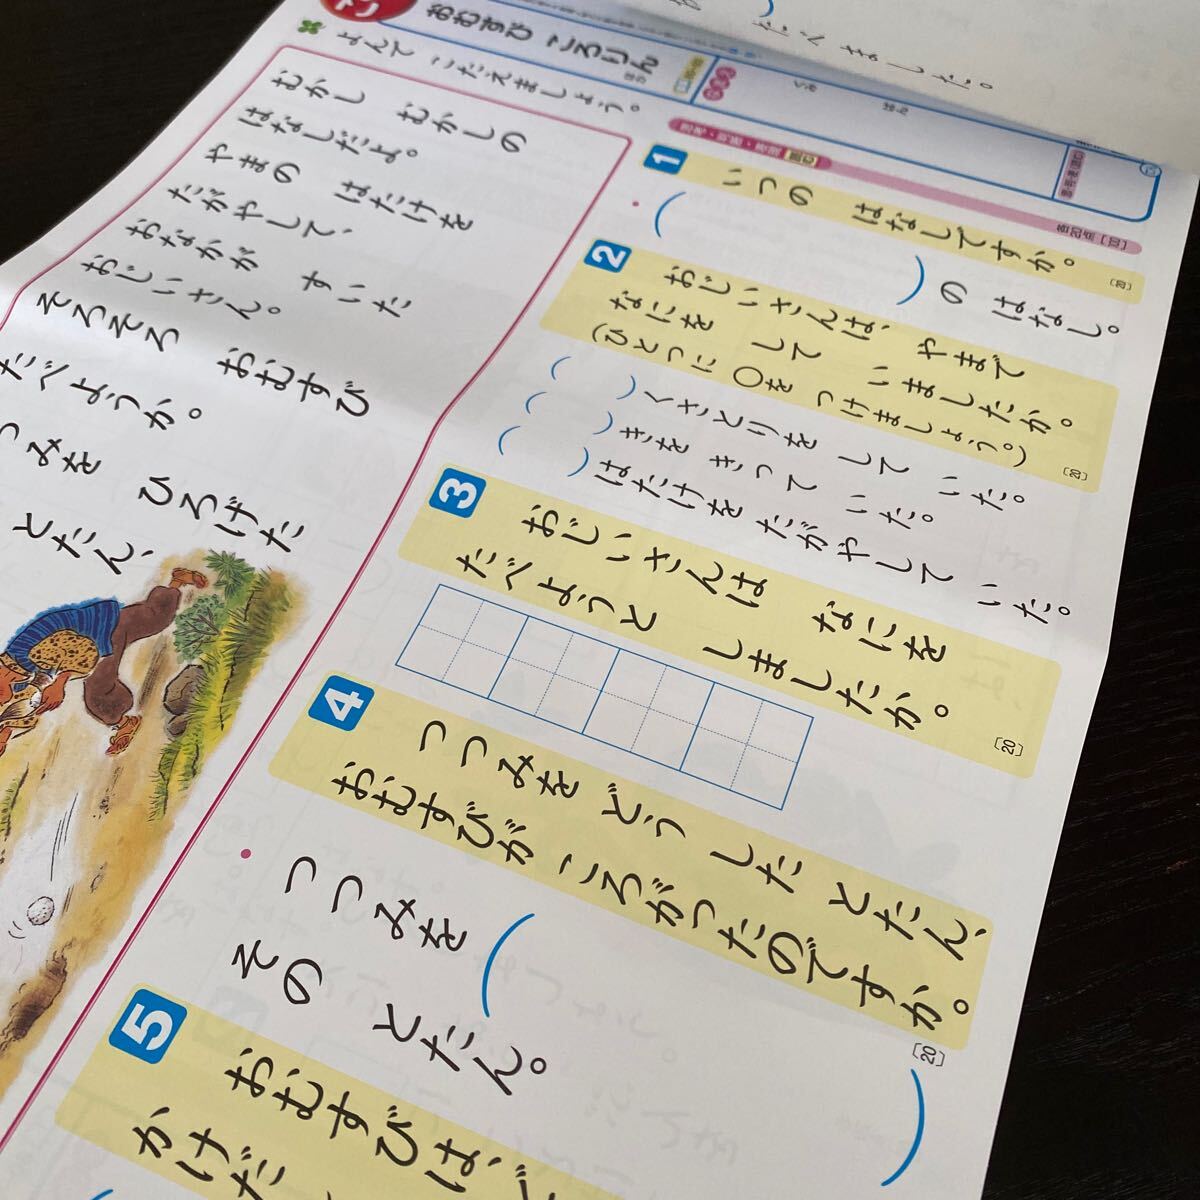 たべました。
おむすび ころりん
よんで こたえましょう。
むかし むかしの
はなしだよ。
やまの はたけを
たがやして、
おなかが すいた
おじいさん。
そろそろ おむすび
たべようか。
つみを ひろげた
とたん、
1 いつの はなしですか。
[20]
( )の はなし。
2 おじいさんは、やまで
なにを して いましたか。
(ひとつに ○を つけましょう。)
[20]
( )くさとりを して いた。
( )きを きって いた。
( )はたけを たがやして いた。
3 おじいさんは なにを
たべようと しましたか。
[20]
4 つつみを どう した とたん、
おむすびが ころがったのですか。
[20]
つつみを( )
その とたん。
5 おむすびは、ど
かけだ